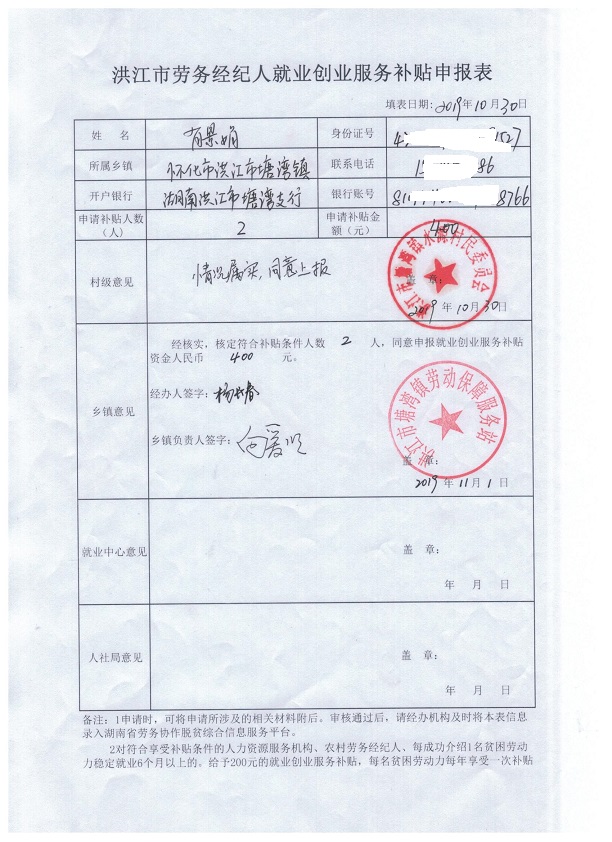 洪江市劳务经纪人就业创业服务补贴申报表
填表日期: 2019年10月30日
姓 名 身份证号 1527
所属乡镇 怀化市洪江市塘湾镇 联系电话 86
开户银行 湖南洪江市塘湾支行 银行账号 8766
申请补贴人数（人） 2 申请补贴金额（元） 400
村级意见 情况属实,同意上报
洪江市塘湾镇水源村村民委员会
盖 章:
2019年10月30日
经核实，核定符合补贴条件人数 2 人，同意申报就业创业服务补贴
资金人民币 400 元。
经办人签字:
乡镇意见
乡镇负责人签字:
洪江市塘湾镇劳动保障服务站
盖 章:
2019年11月1日
就业中心意见
盖 章:
年 月 日
人社局意见
盖 章:
年 月 日
备注：1申请时，可将申请所涉及的相关材料附后。审核通过后，请经办机构及时将本表信息
录入湖南省劳务协作脱贫综合信息服务平台。
2对符合享受补贴条件的人力资源服务机构、农村劳务经纪人、每成功介绍1名贫困劳动
力稳定就业6个月以上的。给予200元的就业创业服务补贴，每名贫困劳动力每年享受一次补贴